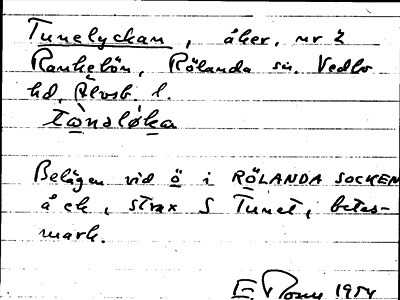 Tunelyckan, åker, nr 2
Rankebön, Rölanda sn. Vedbo
hd, Älvsb. l.
tònsløka
Belägen vid ö i RÖLANDA SOCKEN
å ek, strax S Tunet, betes-
mark.
1954